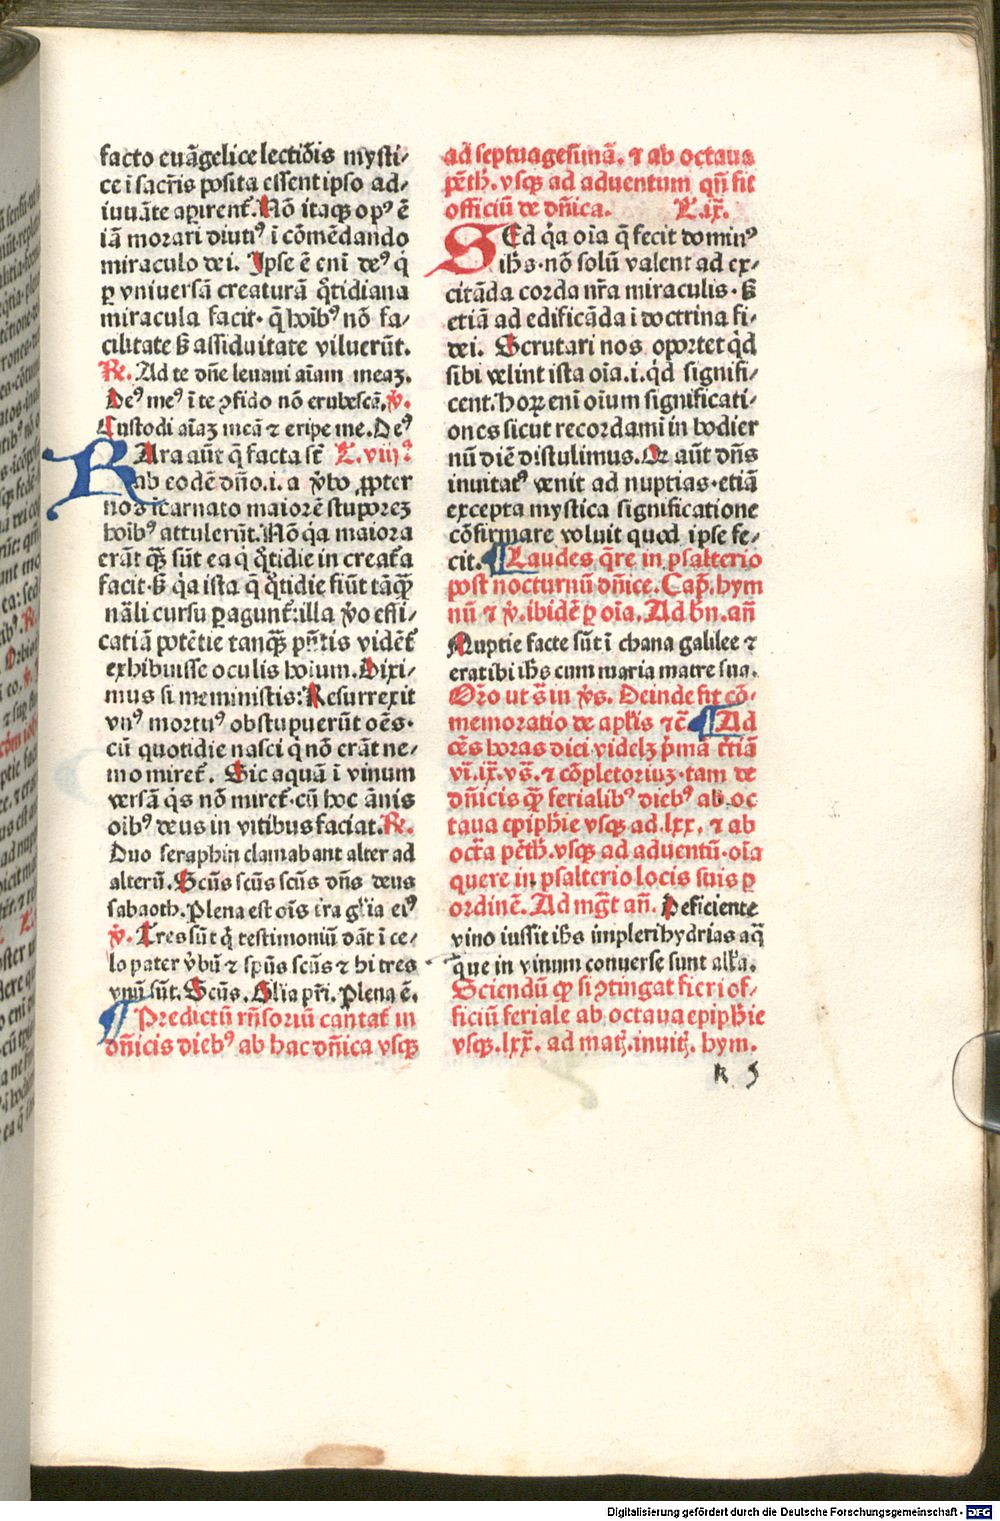 facto euãgelice lectiõis mysti⸗
ce ĩ sacr̃is posita essent ipso ad⸗
iuuãte apirent᷒. Nõ itaqꝫ opꝰ ẽ
iã morari diutiꝰ ĩ cõmẽdando
miraculo dei. Ipse ẽ enĩ deꝰ q̇
ꝑ vniuersã creaturã q̃tidiana
miracula facit· q̃ hoĩbꝰ nõ fa⸗
cilitate ſʒ assiduitate viluerũt.
℞. Ad te dñe leuaui aĩam meaꝫ.
Deꝰ meꝰ ĩ te ꝯfido nõ erubescã. ℣.
Custodi aĩaꝫ meã ⁊ eripe me. Deꝰ
RAra aũt q̃ facta st̃ L.viij.
ab eodẽ dño .i. a v̾bo ꝓpter
nos ĩcarnato maiorẽ stuporeꝫ
hoĩbꝰ attulerũt. Nõ q̇a maiora
erãt qꝫ̃ sũt ea q̃ q̃tidie in creat᷒a
facit· ſʒ q̇a ista q̃ q̃tidie fiũt tãqꝫ̃
nãli cursu ꝑagunt᷒: illa v̾o effi⸗
catiã potẽtie tanqꝫ̃ p̃ñtis vidẽt᷒
exhibuisse oculis hoĩum. Dixi⸗
mus si meministis: Resurrexit
vnꝰ mortuꝰ obstupuerũt oẽs·
cũ quotidie nasci q̇ nõ erãt ne⸗
mo miret᷒. Sic aquã ĩ vinum
versã q̇s nõ miret᷒· cũ hoc ãnis
oĩbꝰ deus in vitibus faciat. ℞.
Duo seraphin clamabant alter ad
alterũ. Sc̃us sc̃us sc̃us dñs deus
sabaoth. Plena est oĩs tr̃a gl̃ia eiꝰ
℣. Tres sũt q̇ testimoniũ dãt ĩ ce⸗
lo pater v̾bũ ⁊ sp̃us sc̃us ⁊ hi tres
vnũ sũt. Sc̃us. Gl̃ia pr̃i. Plena ẽ.
¶ Predictũ rñsoriũ cantat᷒ in
dñicis diebꝰ ab hac dñica vsqꝫ
ad septuagesimã. ⁊ ab octaua
pẽth. vsqꝫ ad aduentum qñ fit
officiũ de dñica. L.ix.
SEd q̇a oĩa q̃ fecit dominꝰ
ih̃s· nõ solũ valent ad ex⸗
citãda corda nr̃a miraculis· ſʒ
etiã ad edificãda ĩ doctrina fi⸗
dei. Scrutari nos oportet qd̾
sibi velint ista oĩa .i. qd̾ signifi⸗
cent. Hoꝝ enĩ oĩum significati⸗
ones sicut recordamĩ in hodier
nũ diẽ distulimus. Qr aũt dñs
inuitatꝰ venit ad nuptias· etiã
excepta mystica significatione
cõfirmare voluit quod ipse fe⸗
cit. ¶ Laudes q̃re in psalterio
post nocturnũ dñice. Cap̃. hym
nũ ⁊ ℣. ibidẽ ꝑ oĩa. Ad bñ. añ
Nuptie facte sũt ĩ chana galilee ⁊
erat ibi ih̃s cum maria matre sua.
Or̃o ut s̃ in vs̃. Deinde fit cõ⸗
memoratio de apl̃is ⁊c̃. ¶ Ad
oẽs horas diei videlꝫ p̃mã t̃tiã
vĩ. ix̃. vs̃. ⁊ cõpletoriuꝫ· tam de
dñicis qꝫ̃ ferialibꝰ diebꝰ ab oc
taua epiph̃ie vsqꝫ ad .lxx. ⁊ ab
oct̃a pẽth. vsqꝫ ad aduentũ· oĩa
quere in psalterio locis suis ꝑ
ordinẽ. Ad mg̃t añ. Deficiente
vino iussit ih̃s impleri hydrias aq̃
que in vinum conuerse sunt all̃a.
Sciendũ ꝙ si ꝯtingat fieri of⸗
ficiũ feriale ab octaua epiph̃ie
vsqꝫ .lxx̃. ad matꝫ. inuitꝫ. hym.
R 5
Digitalisierung gefördert durch die Deutsche Forschungsgemeinschaft - DFG